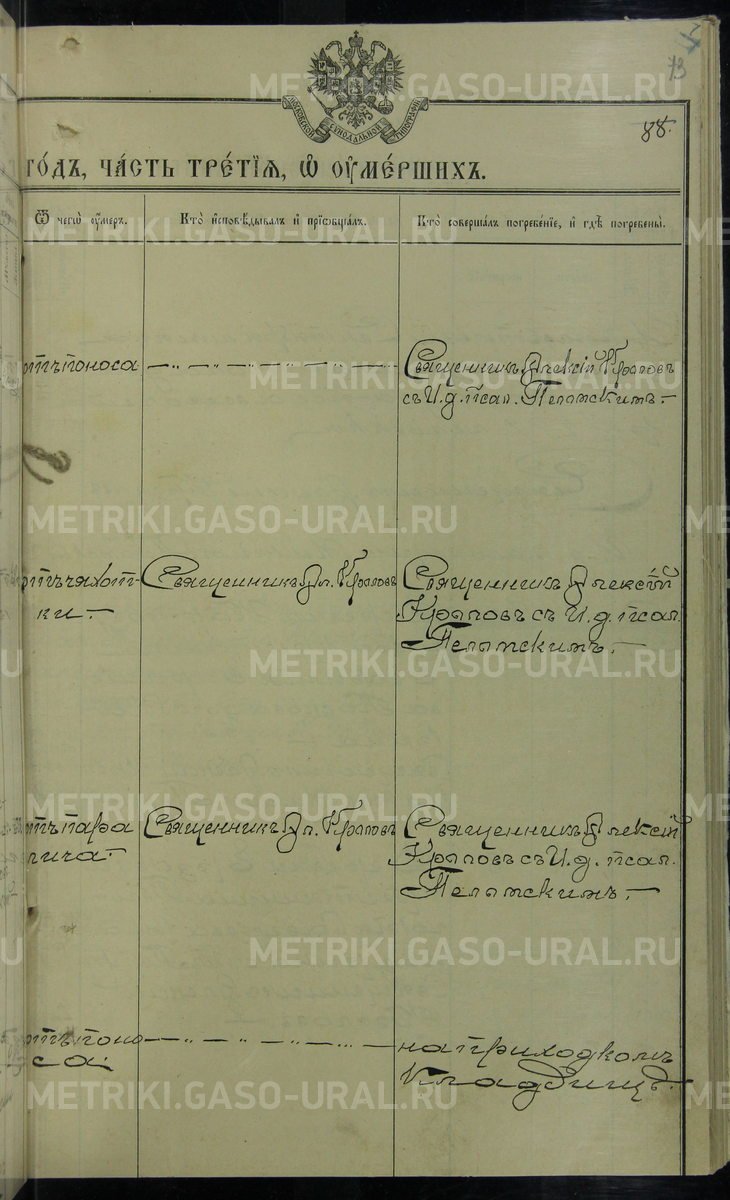 73
88.
МОСКОВСКОЙ СѴНОДАЛЬНОЙ ТИПОГРАФІИ
ГО́ДЪ, ЧА́СТЬ ТРЕ́ТІѦ, Ѽ ОУМЕ́РШИХЪ.
Ѿ чегѡ̀ оу́меръ.
Кто̀ и҆сповѣ́дывалъ и҆ прїѡбща́лъ.
Кто̀ соверша́лъ погребе́нїе, и҆ гдѣ̀ погребены̀.
отъ поноса
Священникъ Алексій Краповъ
съ И. д. псал. Пелымскимъ.
отъ чахот-
ки
Священникъ Ал. Краповъ
Священникъ Алексій
Краповъ съ И. д. псал.
Пелымскимъ.
отъ пара
лича
Священникъ Ал. Краповъ
Священникъ Алексій
Краповъ съ И. д. псал.
Пелымскимъ.
отъ поно
са
на приходкомъ
кладбищѣ.
METRIKI.GASO-URAL.RU